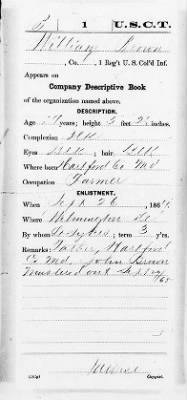 B 1 U.S.C.T.
William Brown
, Co. , 1 Reg't U. S. Col'd Inf.
Appears on
Company Descriptive Book
of the organization named above.
DESCRIPTION.
Age years; height 5 feet inches.
Complexion Blk
Eyes Blk ; hair, Blk
Where born Hartford Co Md
Occupation Farmer
ENLISTMENT.
When Sept 26 , 186
Where Wilmington De
By whom ; term 3 y'rs.
Remarks: Father, Hartford
Co Md. John Brown
Mustered out Sept 29/65
Copyist.